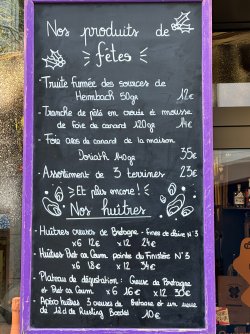 Nos produits de
fêtes
- Truite fumée des sources de
Heimbach 50gr 12€
- Tranche de pâté en croute et mousse
de foie de canard 120gr 14€
- Foie gras de canard de la maison
Doriath 140gr 35€
- Assortiment de 3 terrines 23€
Et plus encore!
Nos huîtres
- Huîtres creuses de Bretagne - Fines de claire N°3
x6 12€ x12 24€
- Huîtres Plat ou Caum pointe du Finistère N°3
x6 18€ x12 34€
- Plateau de dégustation: Creuse de Bretagne
et Plat ou Caum x6 16€ x12 30€
- Apéro huîtres 3 creuses de Bretagne et un verre
du 12cl de Riesling 10€